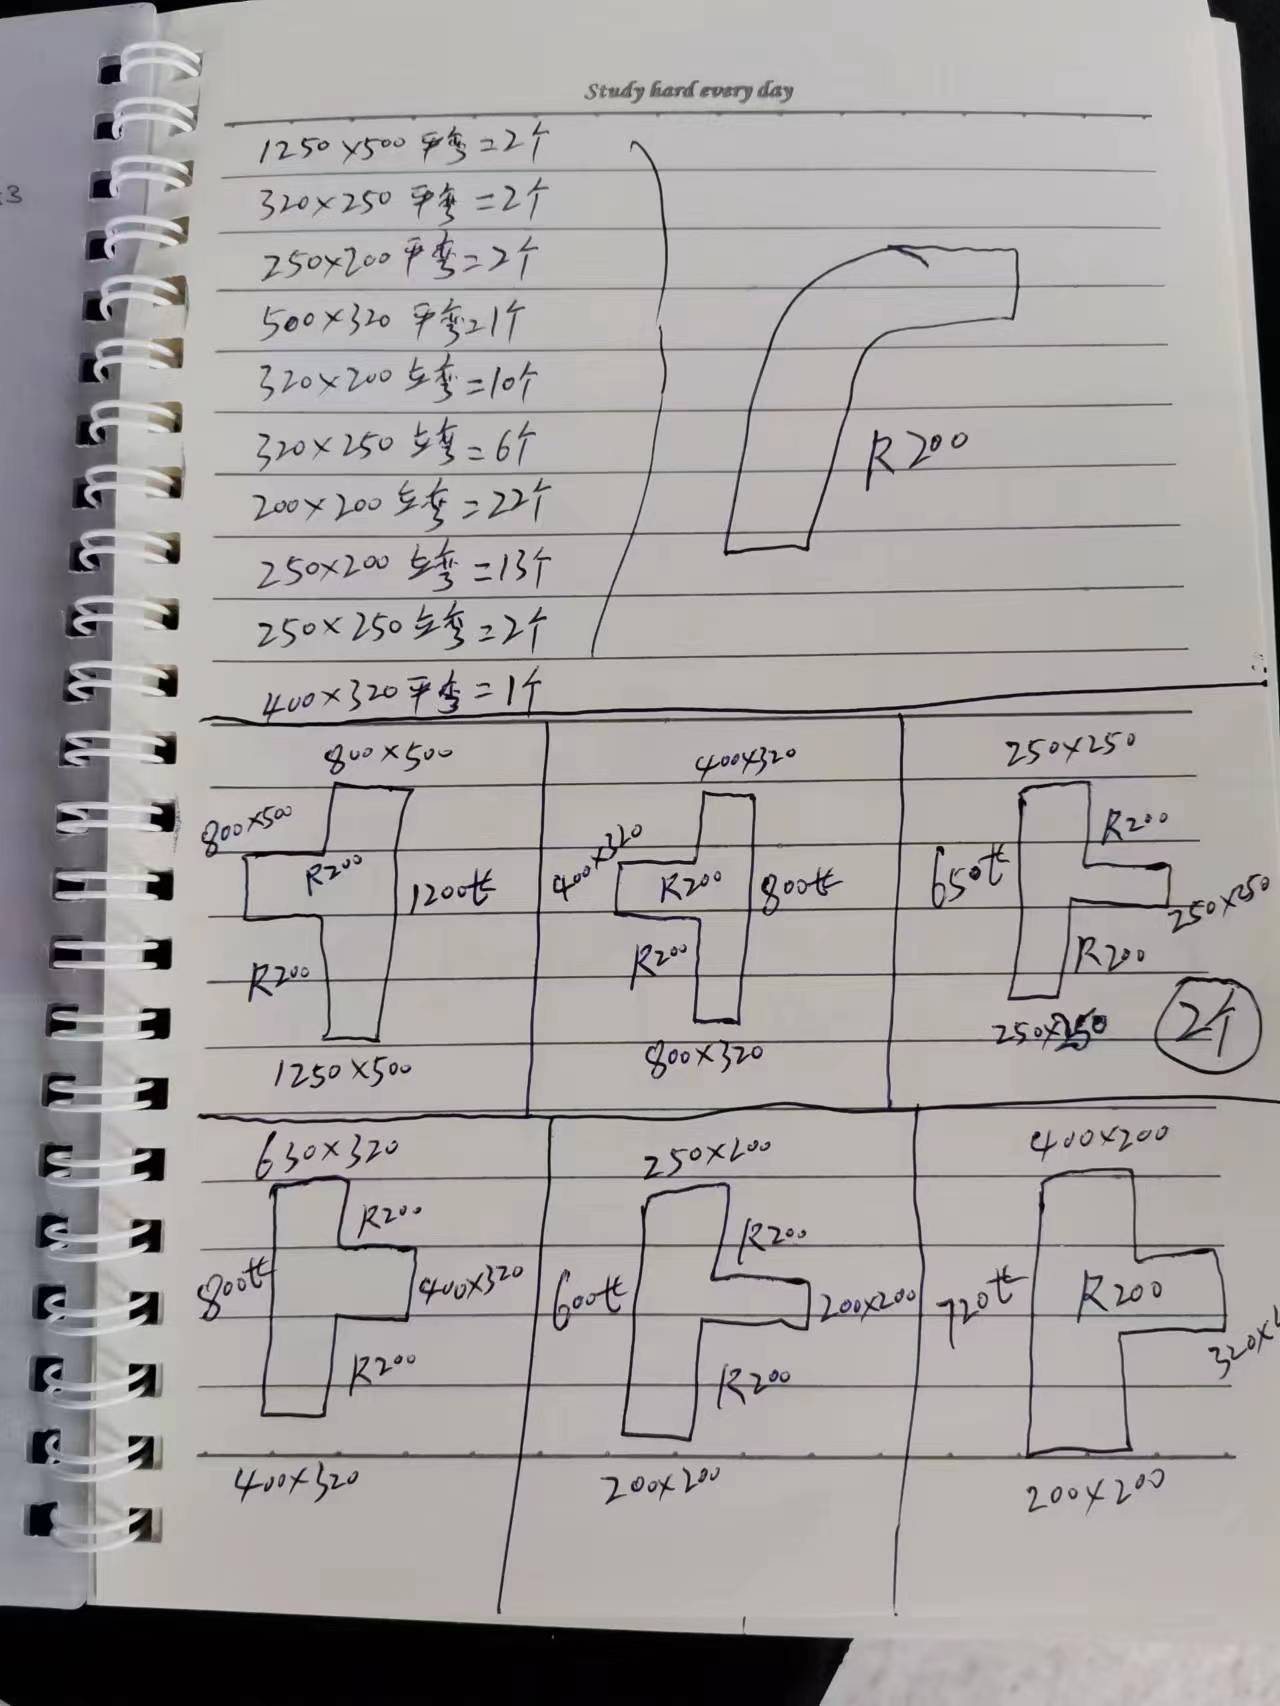 Study hard every day
1250×500 平弯=2个
320×250 平弯=2个
250×200 平弯=2个
500×320 平弯=1个
320×200 立弯=10个
320×250 立弯=6个
200×200 立弯=22个
250×200 立弯=13个
250×250 立弯=2个
400×320 平弯=1个
R200
800×500
800×500
R200
1200长
R200
1250×500
400×320
400×320
R200
800长
R200
800×320
250×250
R200
650长
250×250
R200
250×250
2个
630×320
R200
800长
400×320
R200
400×320
250×200
R200
600长
200×200
R200
200×200
400×200
720长
R200
320×
200×200